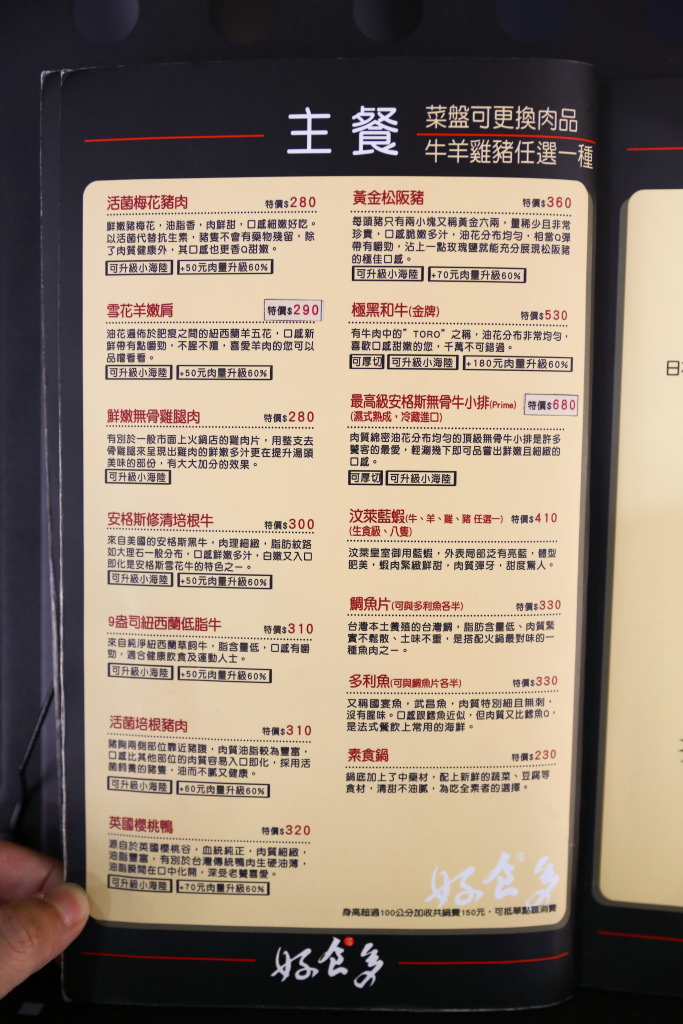 主餐
菜盤可更換肉品
牛羊雞豬任選一種
活菌梅花豬肉 特價$280
鮮嫩豬梅花，油脂香，肉鮮甜，口感細嫩好吃。
以活菌代替抗生素，豬隻不會有藥物殘留，除
了肉質健康外，其口感也更香Q甜嫩。
可升級小海陸 +50元肉量升級60%
雪花羊嫩肩 特價$290
油花遍佈於肥瘦之間的紐西蘭羊五花，口感新
鮮帶有點嚼勁，不腥不羶，喜愛羊肉的您可以
品嚐看看。
可升級小海陸 +50元肉量升級60%
鮮嫩無骨雞腿肉 特價$280
有別於一般市面上火鍋店的雞肉片，用整支去
骨雞腿來呈現出雞肉的鮮嫩多汁更在提升湯頭
美味的部份，有大大加分的效果。
可升級小海陸
安格斯修清培根牛 特價$300
來自美國的安格斯黑牛，肉理細緻，脂肪紋路
如大理石一般分布，口感鮮嫩多汁，白嫩又入口
即化是安格斯雪花牛的特色之一。
可升級小海陸 +50元肉量升級60%
9盎司紐西蘭低脂牛 特價$310
來自純淨紐西蘭草飼牛，脂含量低，口感有嚼
勁，適合健康飲食及運動人士。
可升級小海陸 +50元肉量升級60%
活菌培根豬肉 特價$310
豬胸兩側部位靠近豬腹，肉質油脂較為豐富，
口感比其他部位的肉質容易入口即化，採用活
菌飼養的豬隻，油而不膩又健康。
可升級小海陸 +60元肉量升級60%
英國櫻桃鴨 特價$320
源自於英國櫻桃谷，血統純正，肉質細緻，
油脂豐富，有別於台灣傳統鴨肉生硬油薄，
油脂瞬間在口中化開，深受老饕喜愛。
可升級小海陸 +70元肉量升級60%
黃金松阪豬 特價$360
每頭豬只有兩小塊又稱黃金六兩，量稀少且非常
珍貴，口感脆嫩多汁，油花分布均勻，相當Q彈
帶有嚼勁，沾上一點玫瑰鹽就能充分展現松阪豬
的極佳口感。
可升級小海陸 +70元肉量升級60%
極黑和牛(金牌) 特價$530
有牛肉中的”TORO”之稱，油花分布非常均勻，
喜歡口感甜嫩的您，千萬不可錯過。
可厚切 可升級小海陸 +180元肉量升級60%
最高級安格斯無骨牛小排(Prime) 特價$680
(濕式熟成，冷藏進口)
肉質綿密油花分布均勻的頂級無骨牛小排是許多
饕客的最愛，輕涮幾下即可品嘗出鮮嫩且細緻的
口感。
可厚切 可升級小海陸
汶萊藍蝦(牛、羊、雞、豬 任選一) 特價$410
(生食級、八隻)
汶萊皇室御用藍蝦，外表局部泛有亮藍，體型
肥美，蝦肉緊緻鮮甜，肉質彈牙，甜度驚人。
鯛魚片(可與多利魚各半) 特價$330
台灣本土養殖的台灣鯛，脂肪含量低、肉質緊
實不鬆散、土味不重，是搭配火鍋最對味的一
種魚肉之一。
多利魚(可與鯛魚片各半) 特價$330
又稱國宴魚，武昌魚，肉質特別細且無刺，
沒有腥味。口感跟鱈魚近似，但肉質又比鱈魚Q，
是法式餐飲上常用的海鮮。
素食鍋 特價$230
鍋底加上了中藥材，配上新鮮的蔬菜、豆腐等
食材，清甜不油膩，為吃全素者的選擇。
好食多
身高超過100公分加收共鍋費150元，可抵單點區消費
好食多
日